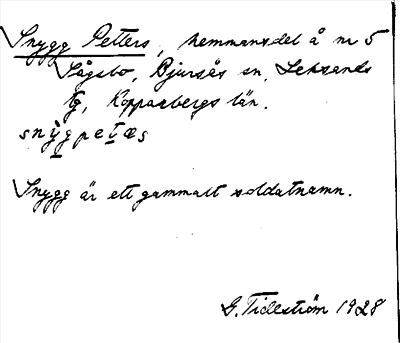 Snygg Petters, hemmansdel å nr 5
Sågsbo, Bjursås sn, Leksands
tg, Kopparbergs län.
snỳgpetæs
Snygg är ett gammalt soldatnamn.
G. Tideström 1928